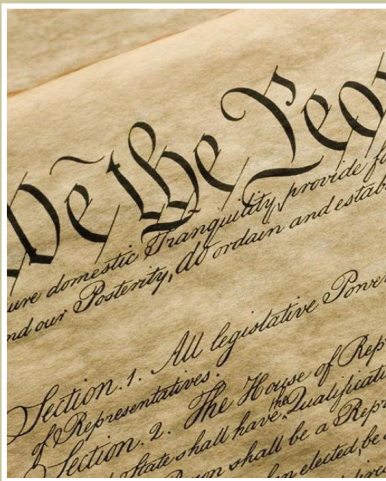 We the Peo
ure domestic Tranquility, provide fo
nd our Posterity, do ordain and estab
Section. 1. All legislative Power
of Representatives.
Section. 2. The House of Rep
State shall have the Qualificati
son shall be a Repr
en elected, be